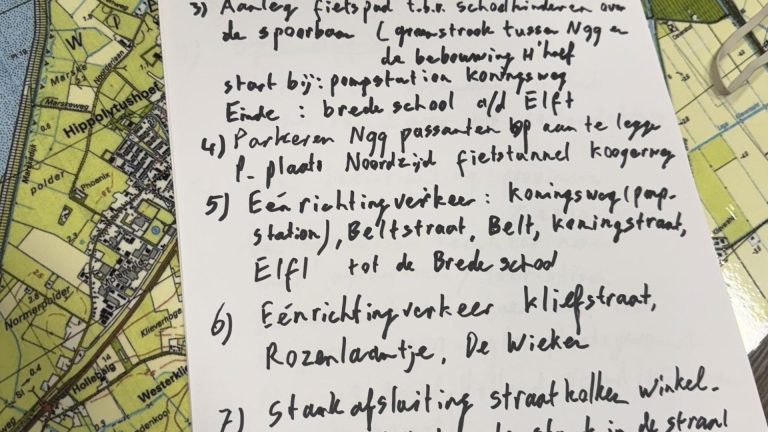 3) Aanleg fietspad t.b.v. schoolkinderen over
de spoorbaan (grasstrook tussen Ngg en
de bebouwing H'hoef
start bij: pompstation koningsweg
Einde : brede school a/d Elft
4) Parkeren Ngg passanten op aan te legge
P- plaats Noordzijd fietstunnel koogerweg
5) Eénrichtingverkeer: koningsweg (pomp-
station), Beltstraat, Belt, koningstraat,
Elft tot de Brede school
6) Eénrichtingverkeer kliefstraat,
Rozenlaantje, De Wieken
7) Stankafsluiting straatkolken winkel-
stank in de straat
Hippolytushoef
polder
Phoenix
Normerpolder
Klieverhoge
Hollebalg
Westerklie